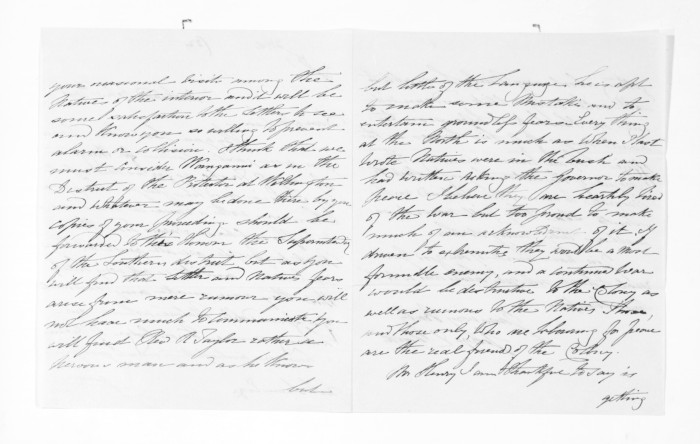 your occasional visits among the
Natives of the interior and it will be
some satisfaction to the Settlers to see
and know you so willing to prevent
alarm or collision. I think that we
must consider Wanganui as in the
District of the Protector at Wellington
and whatever may be done there by you
copies of your proceeding should be
forwarded to His Honor the Superintendent
of the Southern district but as you
will find that Settler and Natives fears
arise from mere rumour you will
not have much to communicate you
will find Rev R Taylor rather a
nervous man and as he knows
but little of the Language he is apt
to make some mistakes and to
entertain groundless fears Every thing
at the North is much as when I last
wrote Natives were in the bush and
had written asking the Governor to make
peace I believe they are heartily tired
of the war but too proud to make
much of an acknowledgment of it, If
driven to extremities they would be a most
formidable enemy, and a continued war
would be destructive to the Colony as
well as ruinous to the Natives. Those,
and those only, who are labouring for peace
are the real friend of the Colony.
Mr Henry I am thankful to say is
getting